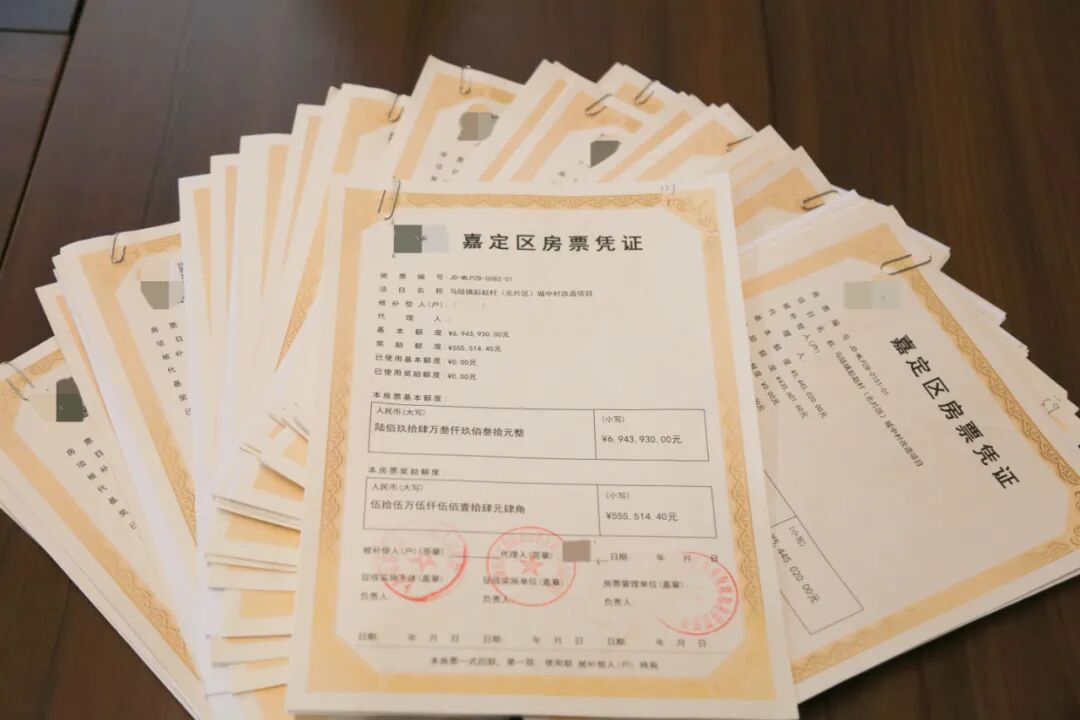 嘉定区房票凭证
房票编号 JD-MLPZB-0082-01
项目名称 马陆镇彭赵村（北片区）城中村改造项目
被补偿人(户):( )
代理人:
基本额度:¥6,943,930.00元
奖励额度:¥555,514.40元
已使用基本额度:¥0.00元
已使用奖励额度:¥0.00元
本房票基本额度:
人民币(大写) (小写)
陆佰玖拾肆万叁仟玖佰叁拾元整 ¥6,943,930.00元
本房票奖励额度:
人民币(大写) (小写)
伍拾伍万伍仟伍佰壹拾肆元肆角 ¥555,514.40元
被补偿人(户)(签章) 代理人(签章) 日期: 年 月 日
征收实施主体(盖章) 征收实施单位(盖章) 房票管理单位(盖章):
负责人 负责人 负责人
日期: 年 月 日 日期: 年 月 日 日期: 年 月 日
本房票一式四联，第一联：使用联 被补偿人(户)持有
嘉定区房票凭证
房票编号 JD-MLPZB-0151-01
项目名称 马陆镇彭赵村（北片区）城中村改造项目
被补偿人(户)
¥5,445,020.00元
¥435,601.60元
¥0.00元
(小写)
¥5,445,020.00元